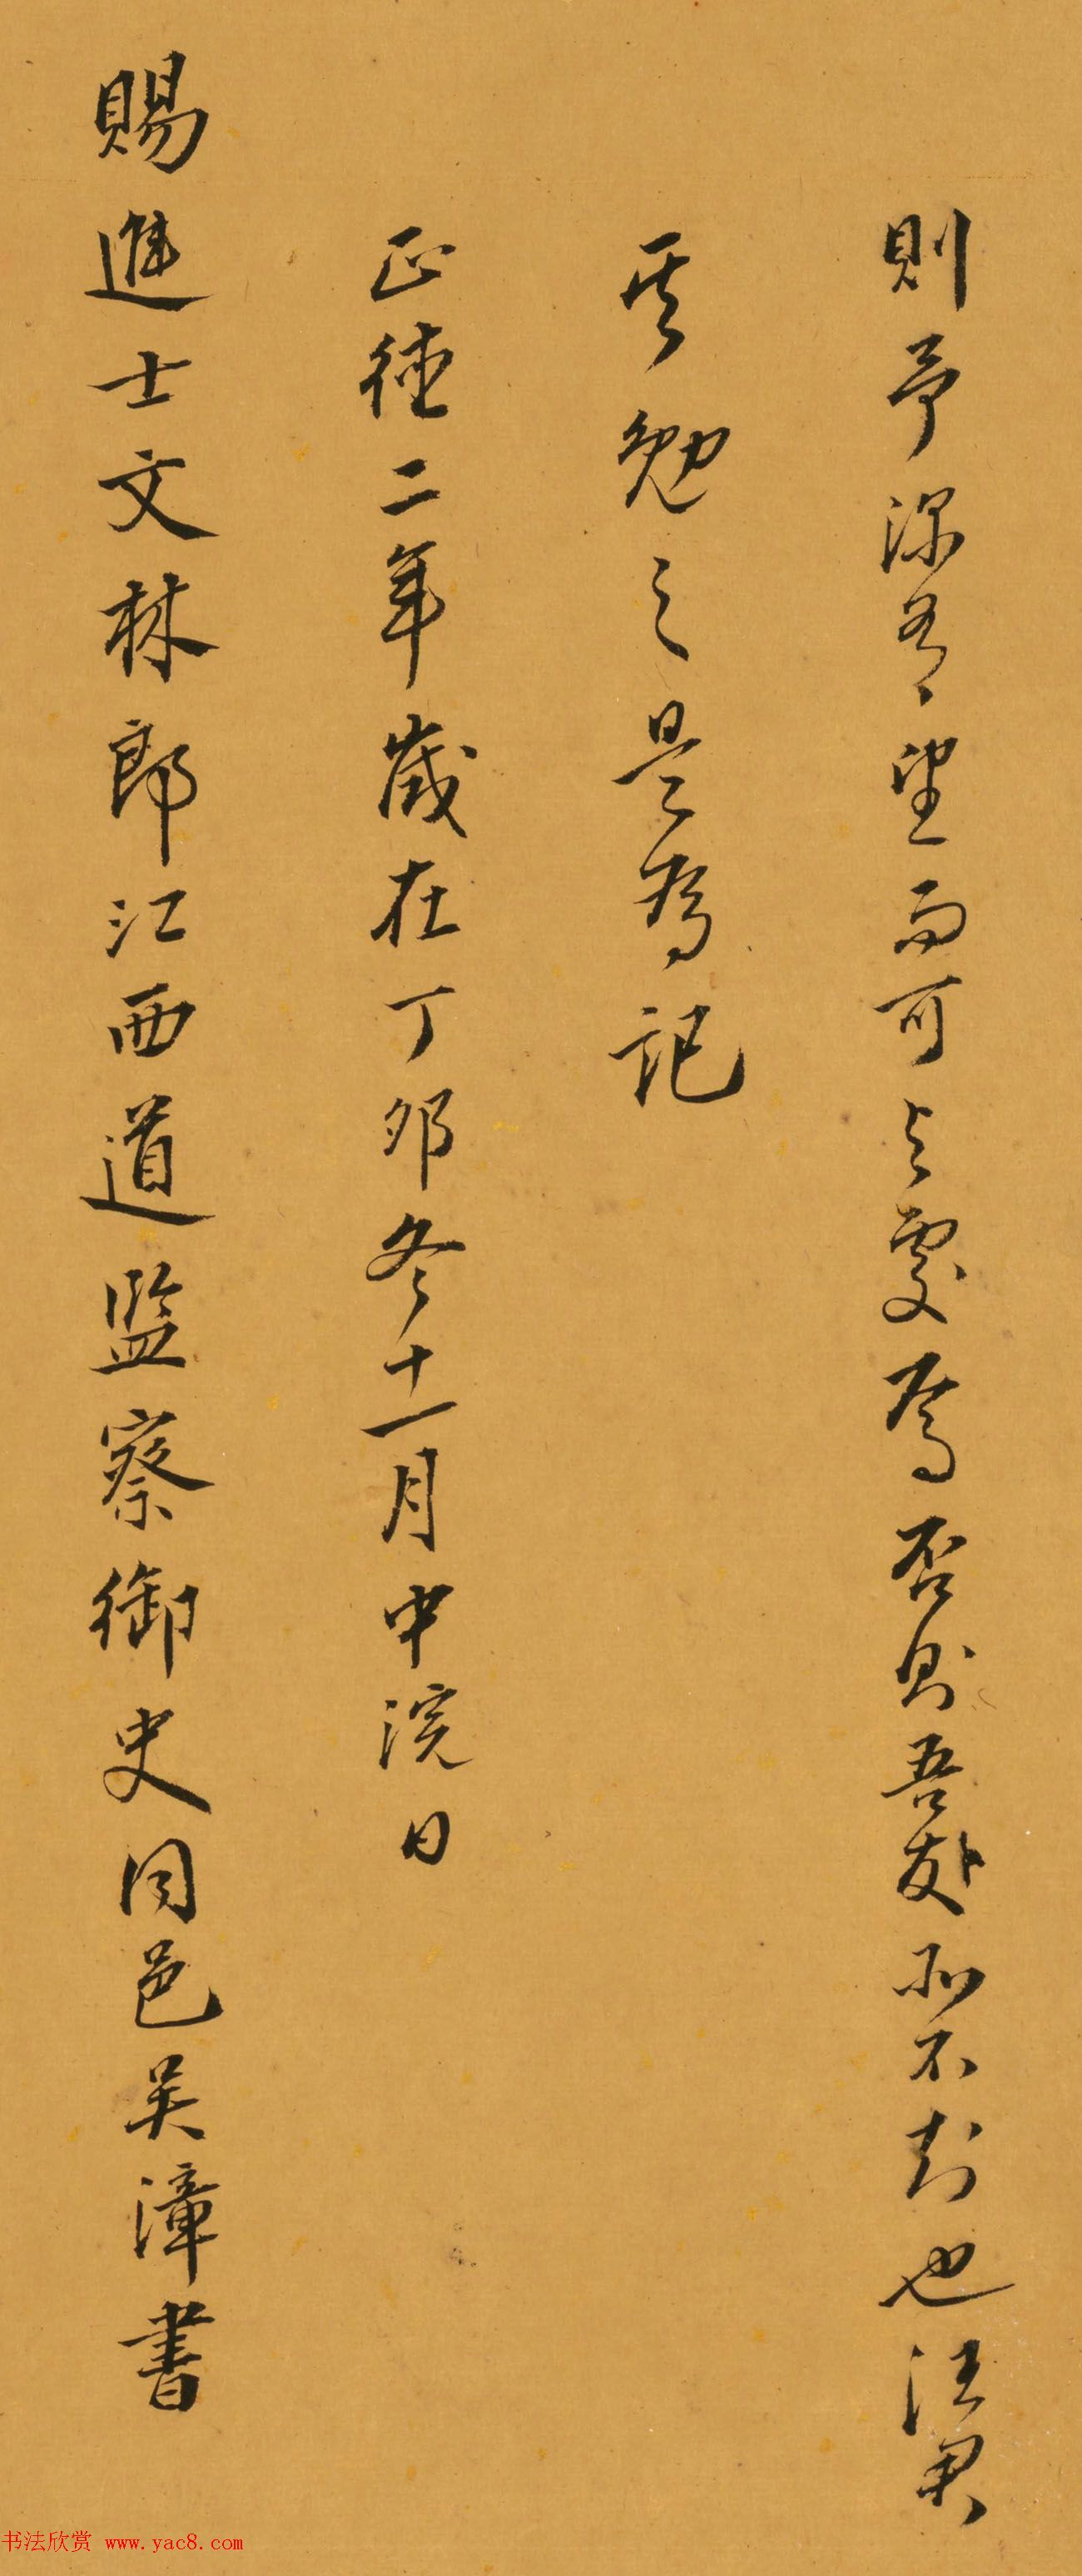 則予深有望而可与處焉否則吾友所不对也汪君
其勉之是為記
正德二年歲在丁卯冬十一月中浣日
賜進士文林郎江西道監察御史同邑吴漳書
书法欣赏 www.yac8.com